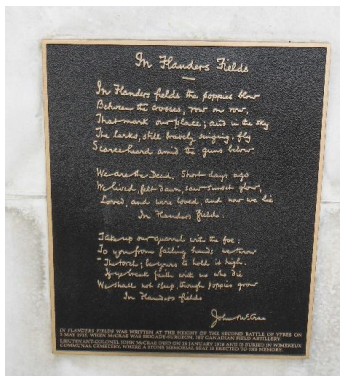 In Flanders Fields
In Flanders fields the poppies blow
Between the crosses, row on row,
That mark our place; and in the sky
The larks, still bravely singing, fly
Scarce heard amid the guns below.
We are the Dead. Short days ago
We lived, felt dawn, saw sunset glow,
Loved, and were loved, and now we lie
In Flanders fields.
Take up our quarrel with the foe:
To you from failing hands we throw
The torch; be yours to hold it high.
If ye break faith with us who die
We shall not sleep, though poppies grow
In Flanders fields
John McCrae
IN FLANDERS FIELDS WAS WRITTEN AT THE HEIGHT OF THE SECOND BATTLE OF YPRES ON
3 MAY 1915, WHEN McCRAE WAS BRIGADE-SURGEON, 1ST CANADIAN FIELD ARTILLERY.
LIEUTENANT-COLONEL JOHN McCRAE DIED ON 28 JANUARY 1918 AND IS BURIED IN WIMEREUX
COMMUNAL CEMETERY, WHERE A STONE MEMORIAL SEAT IS ERECTED TO HIS MEMORY.